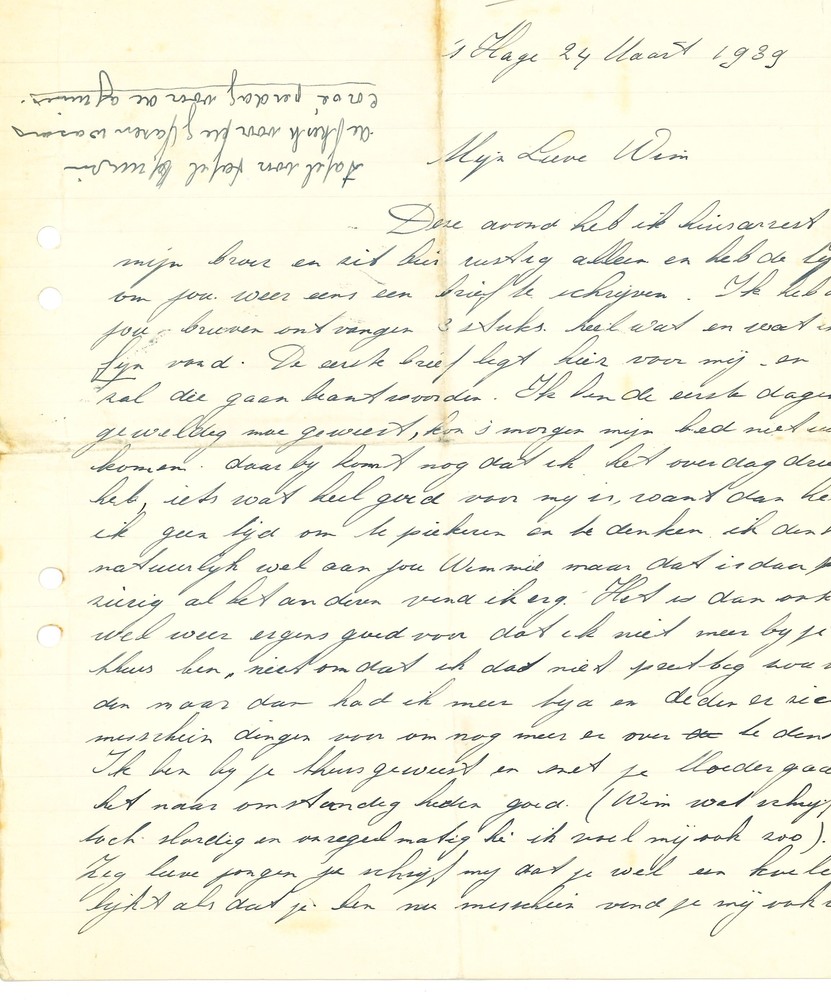 's Hage 24 Maart 1939
Mijn Lieve Wim
Deze avond heb ik huisarrest
mijn broer en zit hier rustig alleen en heb de
om jou weer eens een brief te schrijven. Ik heb
jou brieven ontvangen 3 stuks. heel wat en wat
fijn vond. De eerste brief ligt hier voor mij en
zal die gaan beantwoorden. Ik ben de eerste dagen
geweldig moe geweest, kon s'morgen mijn bed niet
komen. daarby komt nog dat ik het overdag
heb, iets wat heel goed voor my is, want dan
ik geen tijd om te piekeren en te denken. ik
natuurlyk wel aan jou Wimmie maar dat is
al het anderen vind ik erg. Het is dan
wel weer ergens goed voor dat ik niet meer by je
thuis ben, niet omdat ik dat niet prettig
den maar dan had ik meer tyd en deden er
misschien dingen voor om nog meer er over te
Ik ben by je thuis geweest en met je Moeder
het naar omstandigheden goed. (Wim wat
toch slordig en onregelmatig hè ik voel mij ook zoo).
Zeg lieve jongen je schrijft my dat je wel een
lijkt als dat je ben nu misschien vind je mij ook
tafel voor tafel
voor de
per dag voor de